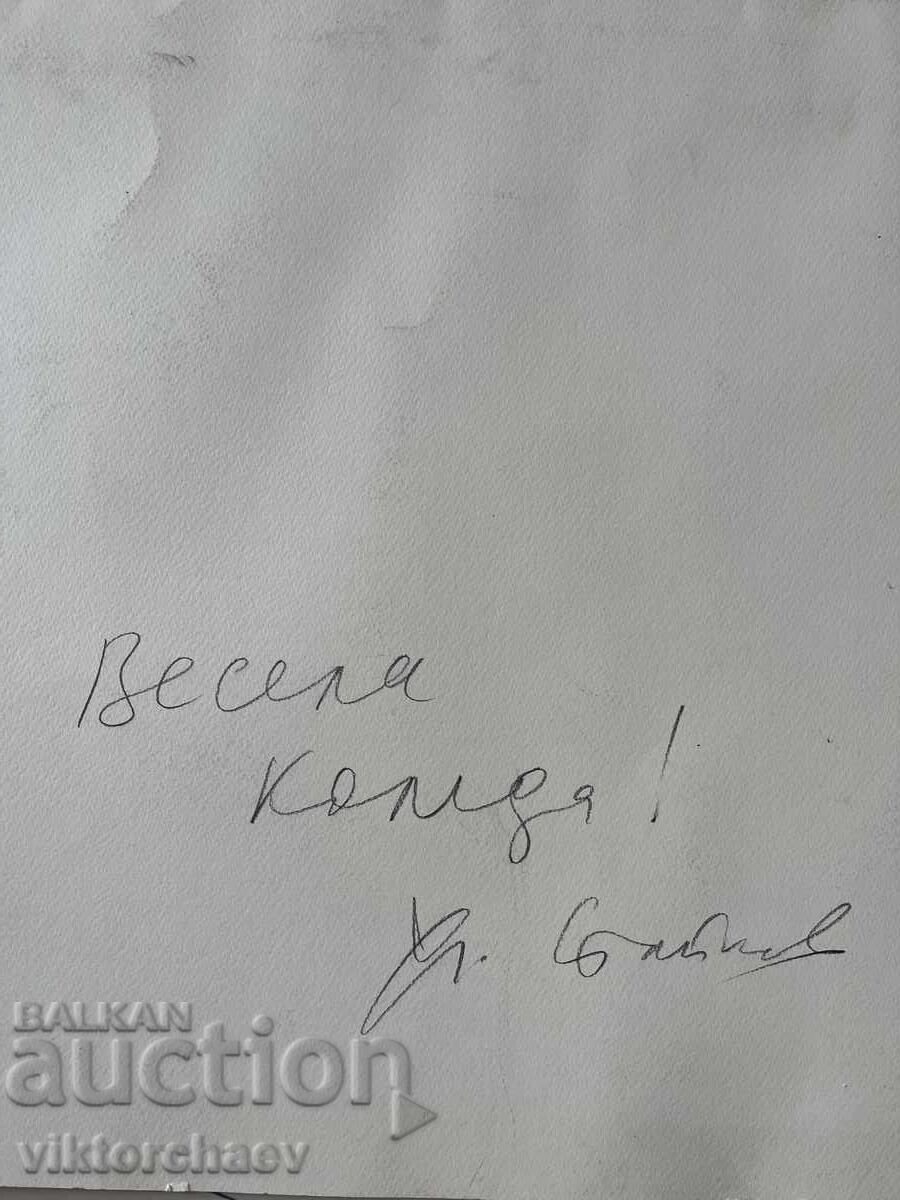 Весела
Коледа!
Хр.
BALKAN
auction
viktorchaev